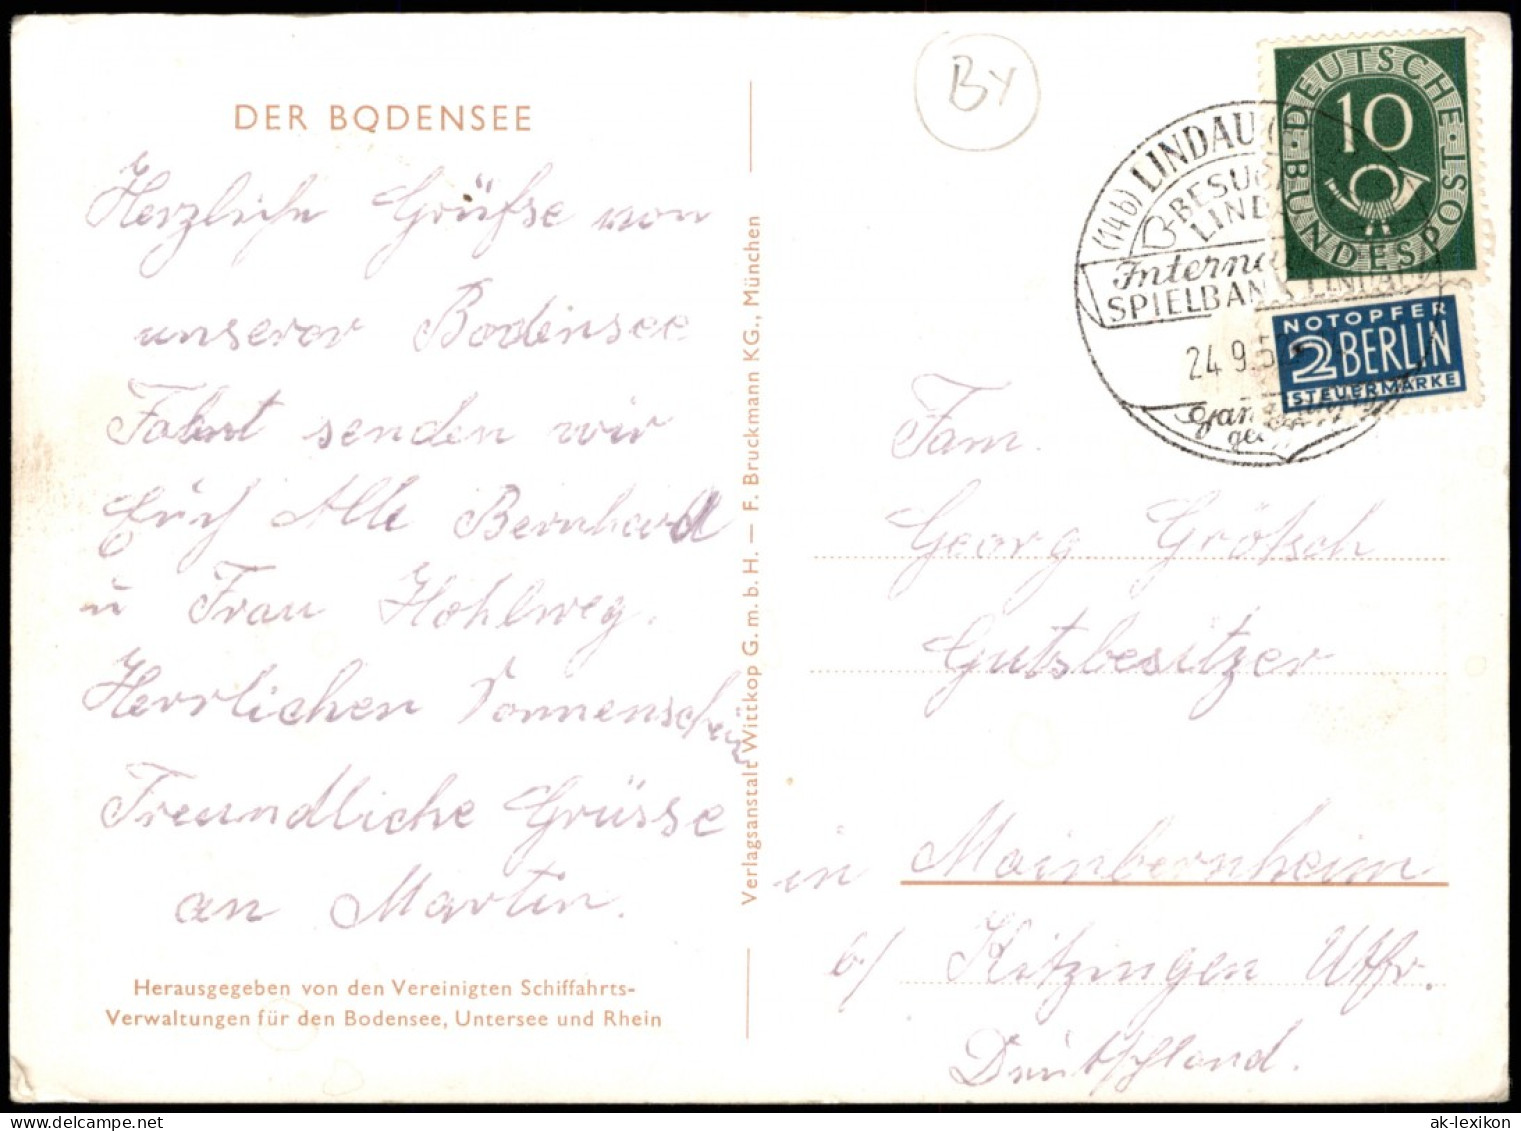 DER BODENSEE
Herzliche Grüße von
unserer Bodensee
Fahrt senden wir
Euch Alle Bernhard
u Frau Hohlweg.
Herrlichen Sonnenschein
Freundliche Grüsse
an Martin.
Herausgegeben von den Vereinigten Schiffahrts-
Verwaltungen für den Bodensee, Untersee und Rhein
Verlagsanstalt Wittkop G.m.b.H. — F. Bruckmann KG., München
By
(14b) LINDAU (
BESUC
LINDA
Interna
SPIELBANK LINDAU
24.9.5
Ganz
ge
DEUTSCHE
BUNDESPOST
10
NOTOPFER
2 BERLIN
STEUERMARKE
Fam.
Georg Grötsch
Gutsbesitzer
in Mainbernheim
b/ Kitzingen Utfr.
Deutschland.
ak-lexikon.com